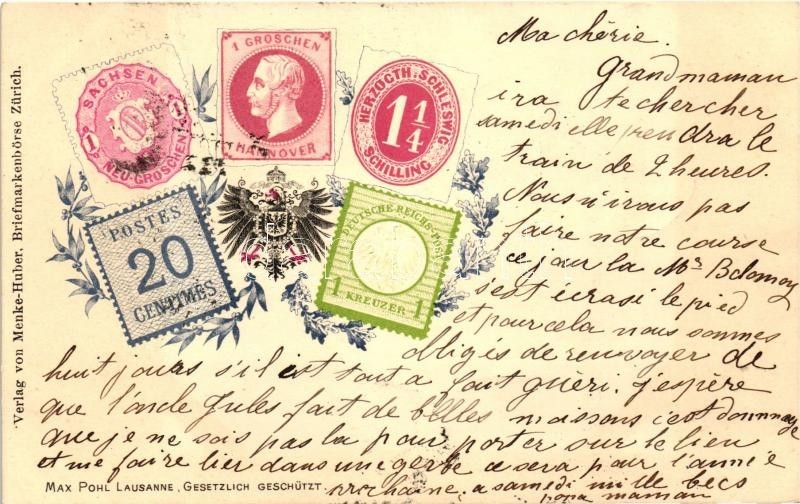 Verlag von Menke-Huber, Briefmarkenbörse Zürich.
SACHSEN
1
1
NEU-GROSCHEN
1 GROSCHEN
HANNOVER
HERZOGTH. SCHLESWIG
1 1/4
SCHILLING
POSTES
20
CENTIMES
DEUTSCHE REICHS-POST
1 KREUZER 1
Ma chérie.
Grandmaman
ira te chercher
samedi elle prendra le
train de 2 heures.
Nous n'irons pas
faire notre course
ce jour la Mr
s'est écrasé le pied
et pour cela nous sommes
obligés de renvoyer de
huit jours s'il est tout a fait guéri. j'espère
que l'oncle Jules fait de belles moissons c'est dommage
que je ne sois pas la pour porter sur le lien
et me faire lier dans une gerbe ce sera pour l'année
prochaine, a samedi mille becs
maman
MAX POHL LAUSANNE, GESETZLICH GESCHÜTZT.